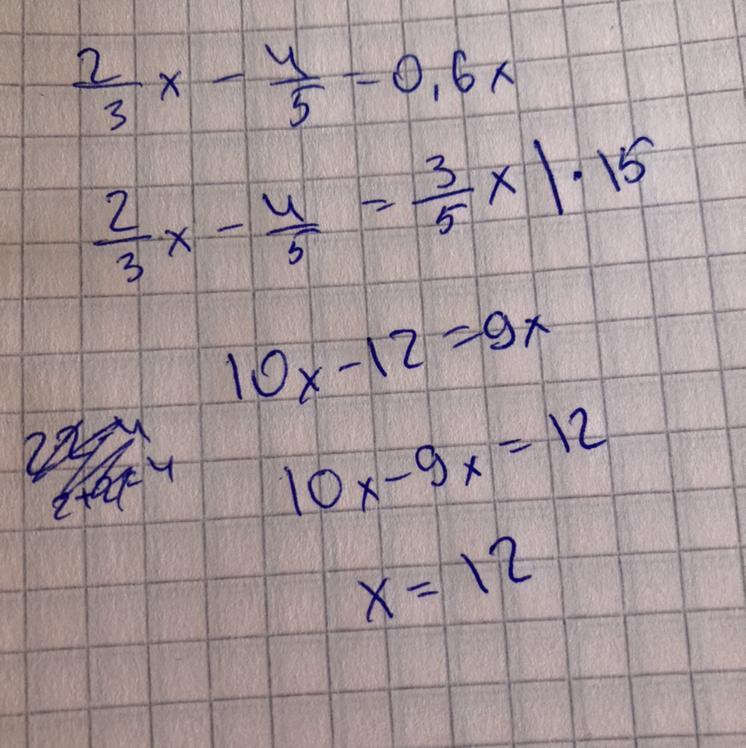 2/3 x - 4/5 = 0,6x
2/3 x - 4/5 = 3/5 x | · 15
10x - 12 = 9x
10x - 9x = 12
x = 12